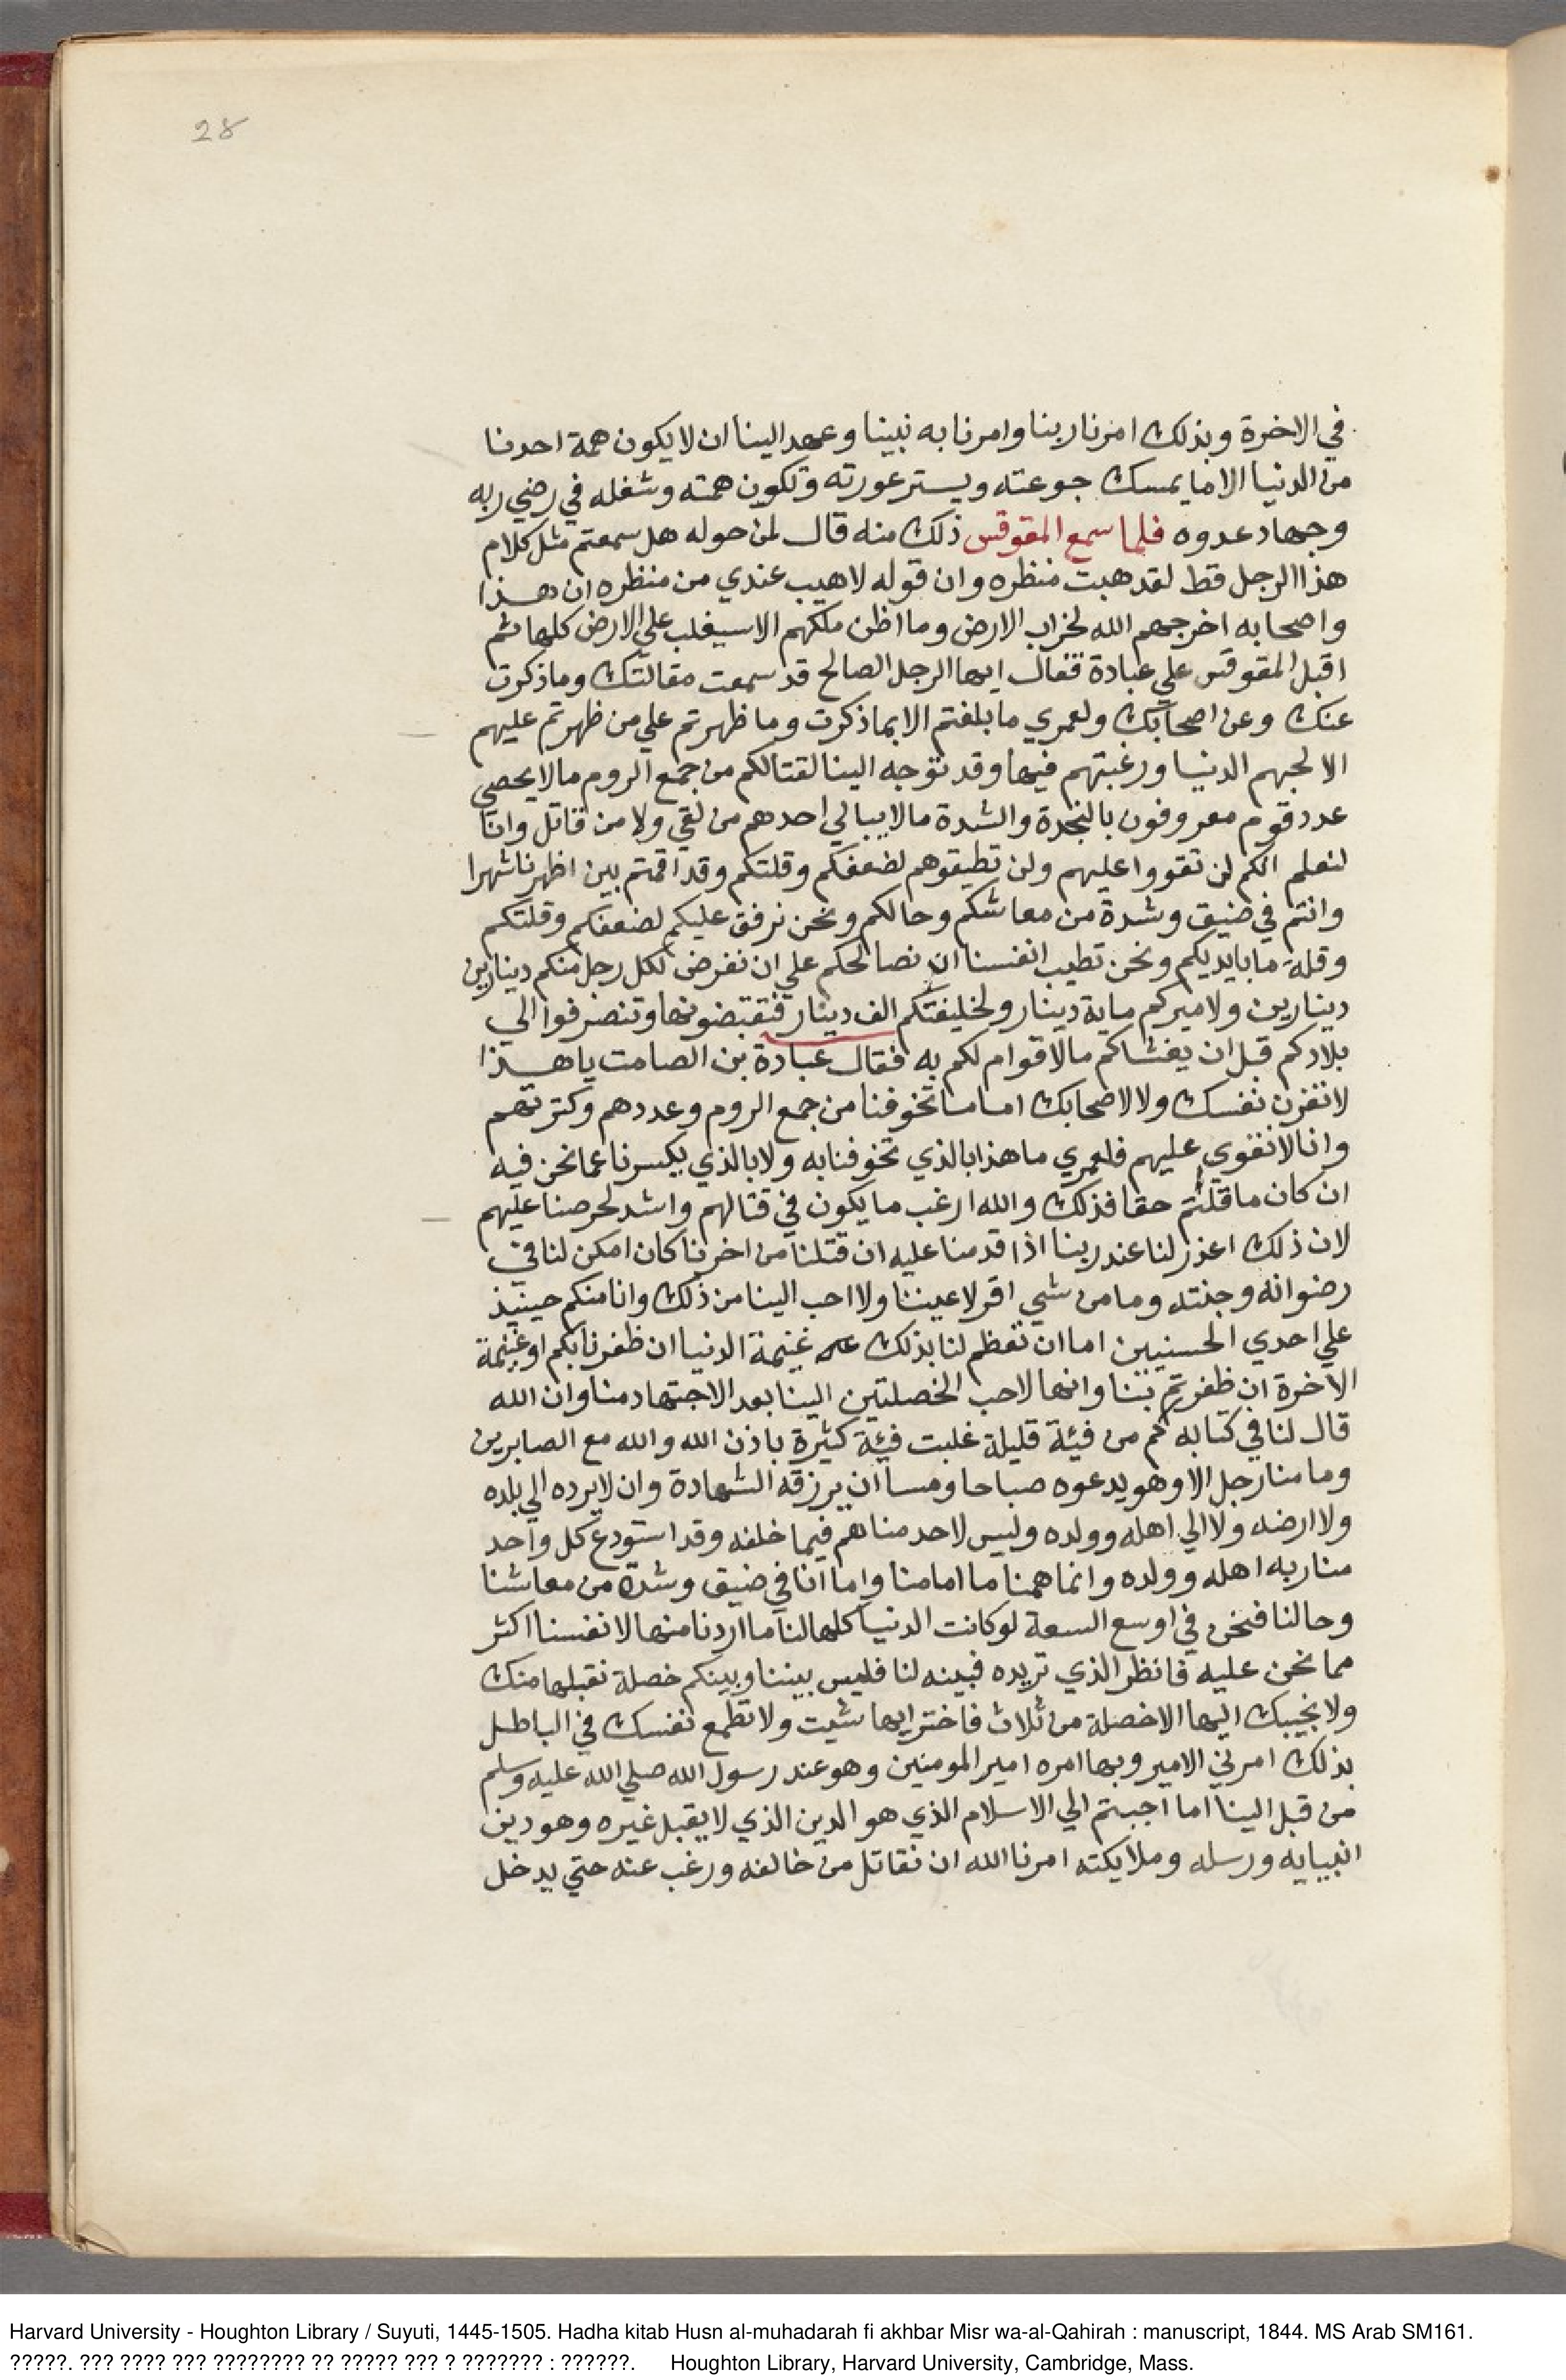 28
في الاخرة وبذلك امرنا ربنا وامرنا به نبينا وعهد الينا ان لا يكون همة احدنا
من الدنيا الا ما يمسك جوعته ويستر عورته وتكون همته وشغله في رضي ربه
وجهاد عدوه فلما سمع المقوقس ذلك منه قال لمن حوله هل سمعتم مثل كلام
هذا الرجل قط لقد هبت منظره وان قوله لاهيب عندي من منظره ان هذا
واصحابه اخرجهم الله لخراب الارض وما اظن ملكهم الا سيغلب علي الارض كلها ثم
اقبل المقوقس علي عبادة فقال ايها الرجل الصالح قد سمعت مقالتك وما ذكرت
عنك وعن اصحابك ولعمري ما بلغتم الا بما ذكرت وما ظهرتم علي من ظهرتم عليهم
الا لحبهم الدنيا ورغبتهم فيها وقد توجه الينا لقتالكم من جمع الروم ما لا يحصي
عدد قوم معروفون بالنجدة والشدة ما لا يبالي احدهم من لقي ولا من قاتل وانا
لنعلم انكم لن تقووا عليهم ولن تطيقوهم لضعفكم وقلتكم وقد اقمتم بين اظهرنا شهرا
وانتم في ضيق وشدة من معاشكم وحالكم ونحن نرفق عليكم لضعفكم وقلتكم
وقلة ما بايديكم ونحن تطيب انفسنا ان نصالحكم علي ان نفرض لكل رجل منكم دينارين
دينارين ولاميركم ماية دينار ولخليفتكم الف دينار فتقبضونها وتنصرفوا الي
بلادكم قبل ان يغشاكم ما لا قوام لكم به فقال عبادة بن الصامت يا هذا
لا تغرن نفسك ولا لاصحابك اما ما تخوفنا من جمع الروم وعددهم وكثرتهم
وانا لا نقوي عليهم فلعمري ما هذا بالذي تخوفنا به ولا بالذي يكسرنا عما نحن فيه
ان كان ما قلتم حقا فذلك والله ارغب ما يكون في قتالهم واشد لحرصنا عليهم
لان ذلك اعذر لنا عند ربنا اذا قدمنا عليه ان قتلنا من اخرنا كان امكن لنا في
رضوانه وجنته وما من شي اقر لاعيننا ولا احب الينا من ذلك وانا منكم حينيذ
علي احدي الحسنيين اما ان تعظم لنا بذلك غنيمة الدنيا ان ظفرنا بكم او غنيمة
الاخرة ان ظفرتم بنا وانها لاحب الخصلتين الينا بعد الاجتهاد منا وان الله
قال لنا في كتابه كم من فيئة قليلة غلبت فيئة كثيرة باذن الله والله مع الصابرين
وما منا رجل الا وهو يدعوه صباحا ومسا ان يرزقه الشهادة وان لا يرده الي بلده
ولا ارضه ولا الي اهله وولده وليس لاحد منا هم فيما خلفه وقد استودع كل واحد
منا ربه اهله وولده وانما همنا ما امامنا واما انا في ضيق وشدة من معاشنا
وحالنا فنحن في اوسع السعة لو كانت الدنيا كلها لنا ما اردنا منها لانفسنا اكثر
مما نحن عليه فانظر الذي تريده فبينه لنا فليس بيننا وبينكم خصلة نقبلها منك
ولا نجيبك اليها الا خصلة من ثلاث فاختر ايها شيت ولا تطمع نفسك في الباطل
بذلك امرني الامير وبها امره امير المومنين وهو عند رسول الله صلي الله عليه وسلم
من قبل الينا اما اجبتم الي الاسلام الذي هو الدين الذي لا يقبل غيره وهو دين
انبيايه ورسله وملايكته امرنا الله ان نقاتل من خالفه ورغب عنه حتي يدخل
Harvard University - Houghton Library / Suyuti, 1445-1505. Hadha kitab Husn al-muhadarah fi akhbar Misr wa-al-Qahirah : manuscript, 1844. MS Arab SM161.
?????. ??? ???? ??? ???????? ?? ????? ??? ? ??????? : ??????. Houghton Library, Harvard University, Cambridge, Mass.